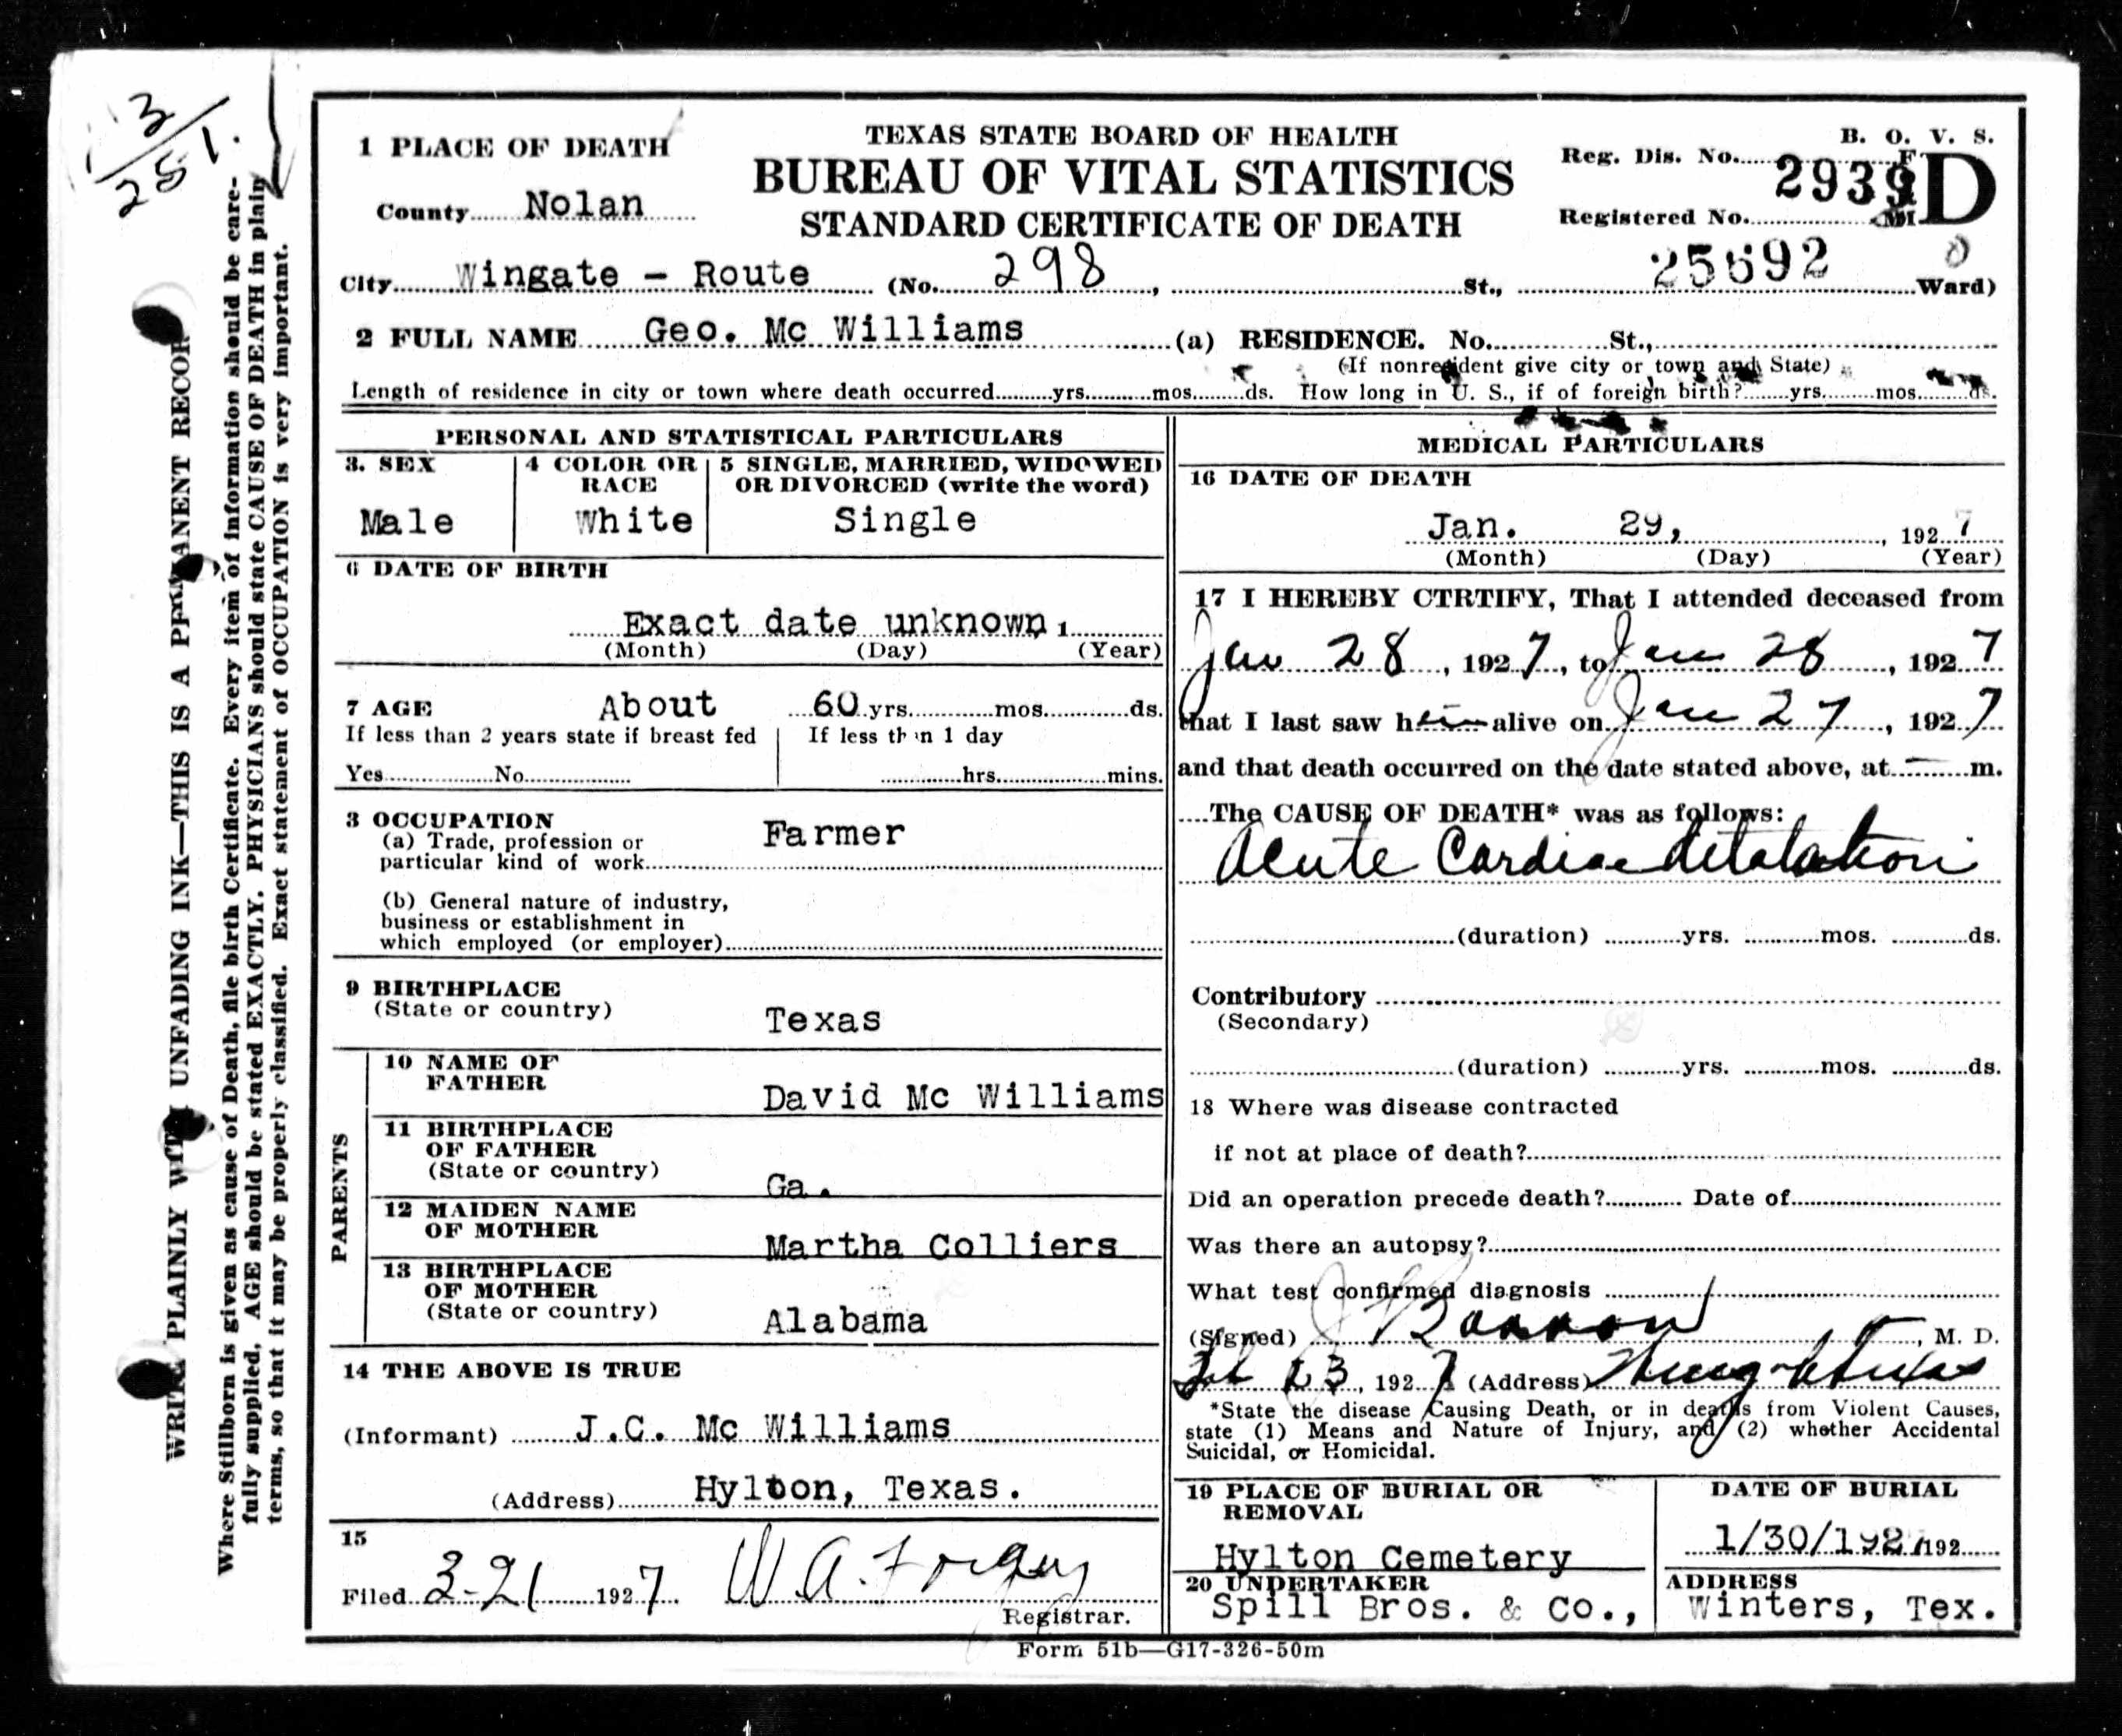 3
251.
WRITE PLAINLY WITH UNFADING INK—THIS IS A PERMANENT RECORD
Where Stillborn is given as cause of Death, file birth Certificate. Every item of information should be care-
fully supplied. AGE should be stated EXACTLY. PHYSICIANS should state CAUSE OF DEATH in plain
terms, so that it may be properly classified. Exact statement of OCCUPATION is very important.
1 PLACE OF DEATH
County Nolan
TEXAS STATE BOARD OF HEALTH
BUREAU OF VITAL STATISTICS
STANDARD CERTIFICATE OF DEATH
B. O. V. S.
Reg. Dis. No. 2939 D
Registered No.
25692
City Wingate - Route (No. 298, St., Ward)
2 FULL NAME Geo. Mc Williams (a) RESIDENCE. No. St.,
(If nonresident give city or town and State)
Length of residence in city or town where death occurred yrs. mos. ds. How long in U. S., if of foreign birth? yrs. mos. ds.
PERSONAL AND STATISTICAL PARTICULARS
3. SEX
Male
4 COLOR OR RACE
White
5 SINGLE, MARRIED, WIDOWED
OR DIVORCED (write the word)
Single
6 DATE OF BIRTH
Exact date unknown, 1
(Month) (Day) (Year)
7 AGE About 60 yrs. mos. ds.
If less than 2 years state if breast fed
Yes No
If less than 1 day
hrs. mins.
8 OCCUPATION
(a) Trade, profession or
particular kind of work Farmer
(b) General nature of industry,
business or establishment in
which employed (or employer)
9 BIRTHPLACE
(State or country) Texas
PARENTS
10 NAME OF
FATHER David Mc Williams
11 BIRTHPLACE
OF FATHER
(State or country) Ga.
12 MAIDEN NAME
OF MOTHER Martha Colliers
13 BIRTHPLACE
OF MOTHER
(State or country) Alabama
14 THE ABOVE IS TRUE
(Informant) J.C. Mc Williams
(Address) Hylton, Texas.
15
Filed 3-21 1927. W.A.
Registrar.
MEDICAL PARTICULARS
16 DATE OF DEATH
Jan. 29, 1927
(Month) (Day) (Year)
17 I HEREBY CTRTIFY, That I attended deceased from
Jan 28, 1927, to Jan 28, 1927
that I last saw him alive on Jan 27, 1927
and that death occurred on the date stated above, at — m.
The CAUSE OF DEATH* was as follows:
Acute Cardiac
(duration) yrs. mos. ds.
Contributory
(Secondary)
(duration) yrs. mos. ds.
18 Where was disease contracted
if not at place of death?
Did an operation precede death? Date of
Was there an autopsy?
What test confirmed diagnosis
(Signed) M. D.
Feb 23, 1927 (Address)
*State the disease Causing Death, or in deaths from Violent Causes,
state (1) Means and Nature of Injury, and (2) whether Accidental
Suicidal, or Homicidal.
19 PLACE OF BURIAL OR
REMOVAL
Hylton Cemetery
DATE OF BURIAL
1/30/1927 192
20 UNDERTAKER
Spill Bros. & Co.,
ADDRESS
Winters, Tex.
Form 51b—G17-326-50m